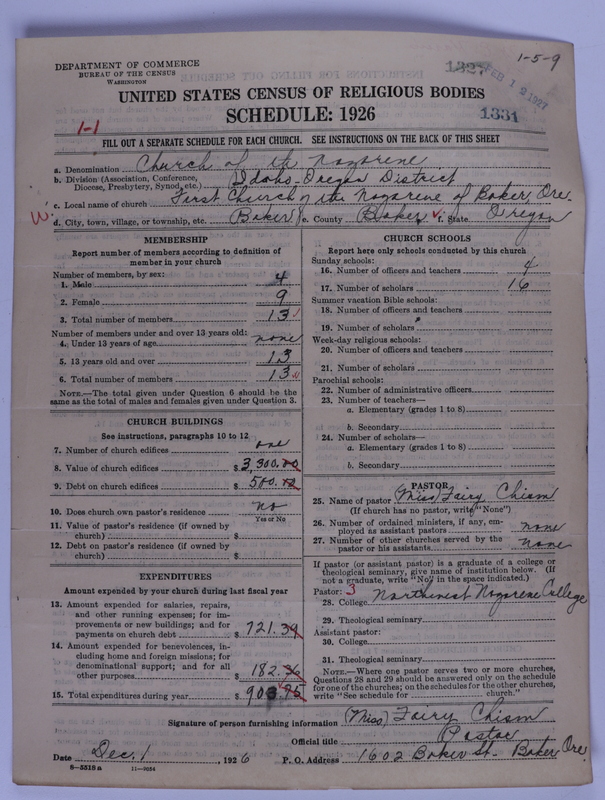 1-5-9
DEPARTMENT OF COMMERCE
BUREAU OF THE CENSUS
WASHINGTON
1327
FEB 12 1927
UNITED STATES CENSUS OF RELIGIOUS BODIES
SCHEDULE: 1926
1331
1-1
FILL OUT A SEPARATE SCHEDULE FOR EACH CHURCH. SEE INSTRUCTIONS ON THE BACK OF THIS SHEET
a. Denomination Church of the Nazarene
b. Division (Association, Conference, Diocese, Presbytery, Synod, etc.) Idaho-Oregon District
c. Local name of church First Church of the Nazarene of Baker, Ore.
W. d. City, town, village, or township, etc. Baker e. County Baker f. State Oregon
MEMBERSHIP
Report number of members according to definition of
member in your church
Number of members, by sex:
1. Male 4
2. Female 9
3. Total number of members 13
Number of members under and over 13 years old:
4. Under 13 years of age none
5. 13 years old and over 13
6. Total number of members 13
NOTE.—The total given under Question 6 should be the
same as the total of males and females given under Question 3.
CHURCH BUILDINGS
See instructions, paragraphs 10 to 12
7. Number of church edifices one
8. Value of church edifices $3,300.00
9. Debt on church edifices $500.00
10. Does church own pastor's residence no
Yes or No
11. Value of pastor's residence (if owned by
church) $
12. Debt on pastor's residence (if owned by
church) $
EXPENDITURES
Amount expended by your church during last fiscal year
13. Amount expended for salaries, repairs,
and other running expenses; for im-
provements or new buildings; and for
payments on church debt $721.39
14. Amount expended for benevolences, in-
cluding home and foreign missions; for
denominational support; and for all
other purposes $182.36
15. Total expenditures during year $903.75
CHURCH SCHOOLS
Report here only schools conducted by this church
Sunday schools:
16. Number of officers and teachers 4
17. Number of scholars 16
Summer vacation Bible schools:
18. Number of officers and teachers
19. Number of scholars
Week-day religious schools:
20. Number of officers and teachers
21. Number of scholars
Parochial schools:
22. Number of administrative officers
23. Number of teachers—
a. Elementary (grades 1 to 8)
b. Secondary
24. Number of scholars—
a. Elementary (grades 1 to 8)
b. Secondary
PASTOR
25. Name of pastor (Miss) Fairy Chism
(If church has no pastor, write "None")
26. Number of ordained ministers, if any, em-
ployed as assistant pastors none
27. Number of other churches served by the
pastor or his assistants none
If pastor (or assistant pastor) is a graduate of a college or
theological seminary, give name of institution below. (If
not a graduate, write "No" in the space indicated.)
Pastor: 3
28. College Northwest Nazarene College
29. Theological seminary
Assistant pastor:
30. College
31. Theological seminary
NOTE.—Where one pastor serves two or more churches,
Questions 28 and 29 should be answered only on the schedule
for one of the churches; on the schedules for the other churches,
write "See schedule for church."
Signature of person furnishing information (Miss) Fairy Chism
Official title Pastor
Date Dec. 1, 1926 P. O. Address 1602 Baker St. Baker, Ore.
8—5518 a 11—9024